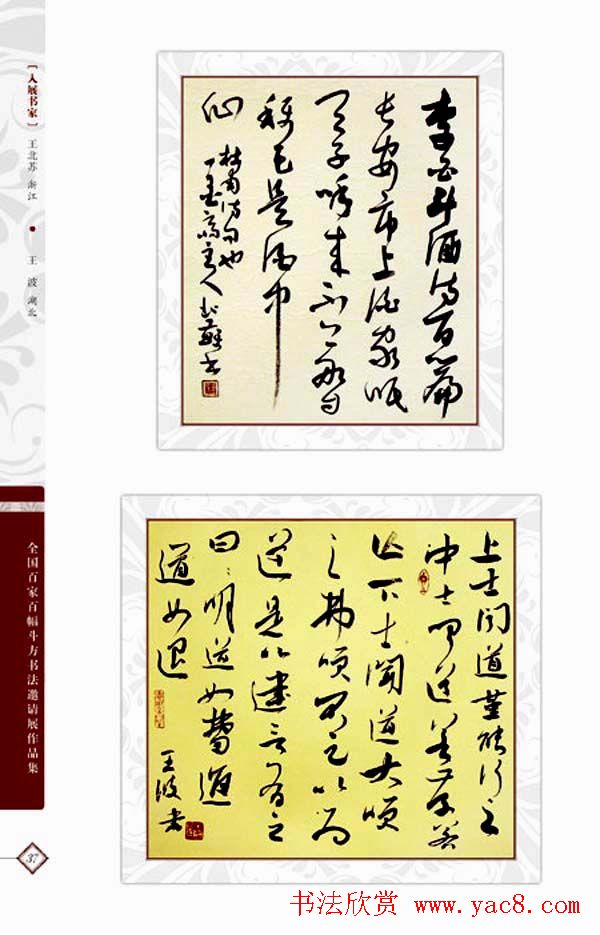 【入展书家】 王北苏 浙江 ● 王波 湖北
全国百家百幅斗方书法邀请展作品集
37
李白斗酒诗百篇
长安市上酒家眠
天子呼来不上船自
称臣是酒中
仙
杜甫诗句也
主人北苏书
上士闻道堇能行之
中士闻道若存若
亡下士聞道大咲
之弗咲不足以为
道是以建言有之
曰明道如费进
道如退
王波书
书法欣赏 www.yac8.com